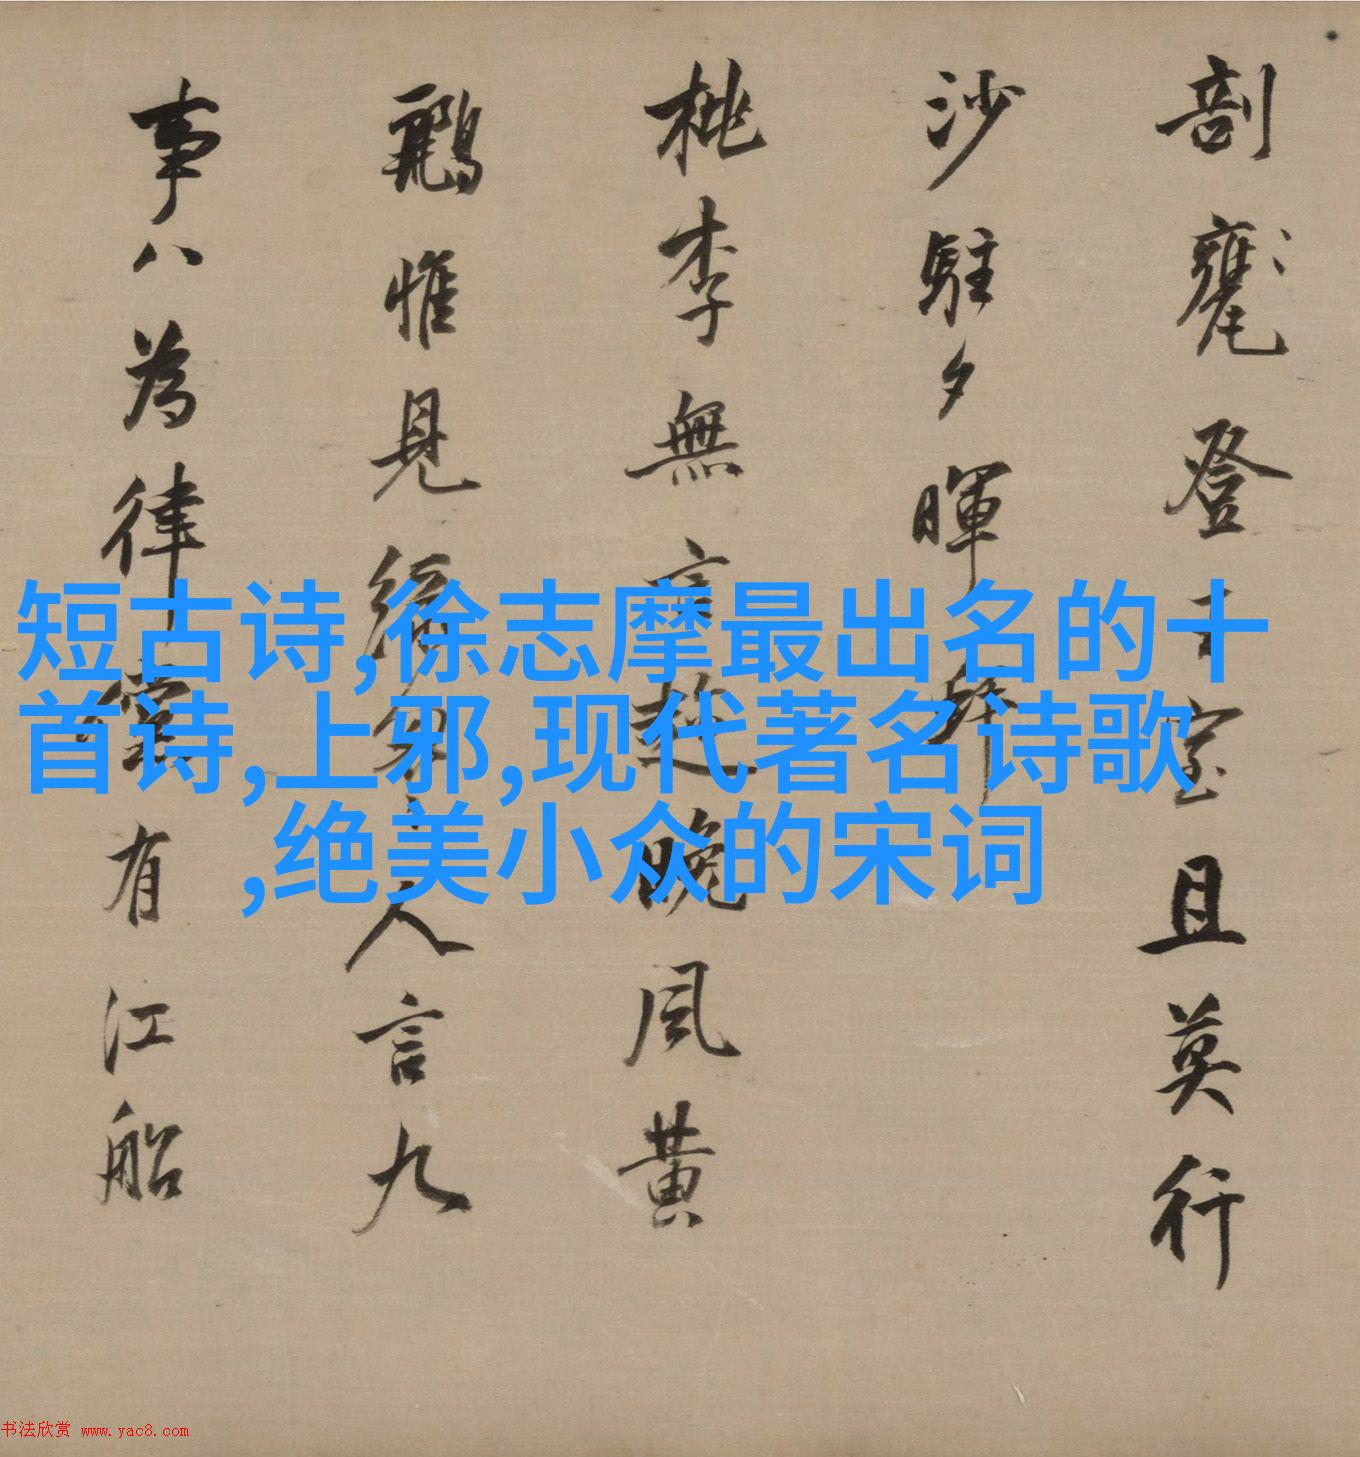 剖甕登室且莫行
沙駐夕暉
桃李無言趂晚風黃
鸝惟見人言九
事八為律堂有江船
短古诗,徐志摩最出名的十
首诗,上邪,现代著名诗歌
,绝美小众的宋词
书法欣赏 www.yac8.com